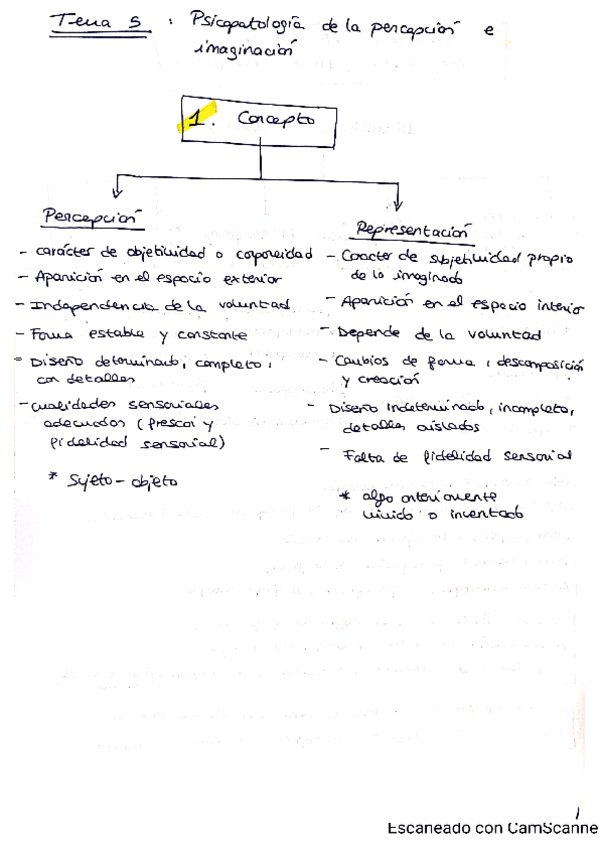 Tema 5 : Psicopatología de la percepción e
imaginación
1. Concepto
Percepción
- carácter de objetividad o corporeidad
- Aparición en el espacio exterior
- Independencia de la voluntad
- Forma estable y constante
- Diseño determinado, completo,
con detalles
- cualidades sensoriales
adecuadas (frescor y
fidelidad sensorial)
* Sujeto - objeto
Representación
- Caracter de subjetividad propio
de lo imaginado
- Aparición en el espacio interior
- Depende de la voluntad
- Cambios de forma, descomposición
y creación
- Diseño indeterminado, incompleto,
detalles aislados
- Falta de fidelidad sensorial
* algo anteriormente
vivido o inventado
1
Escaneado con CamScanne